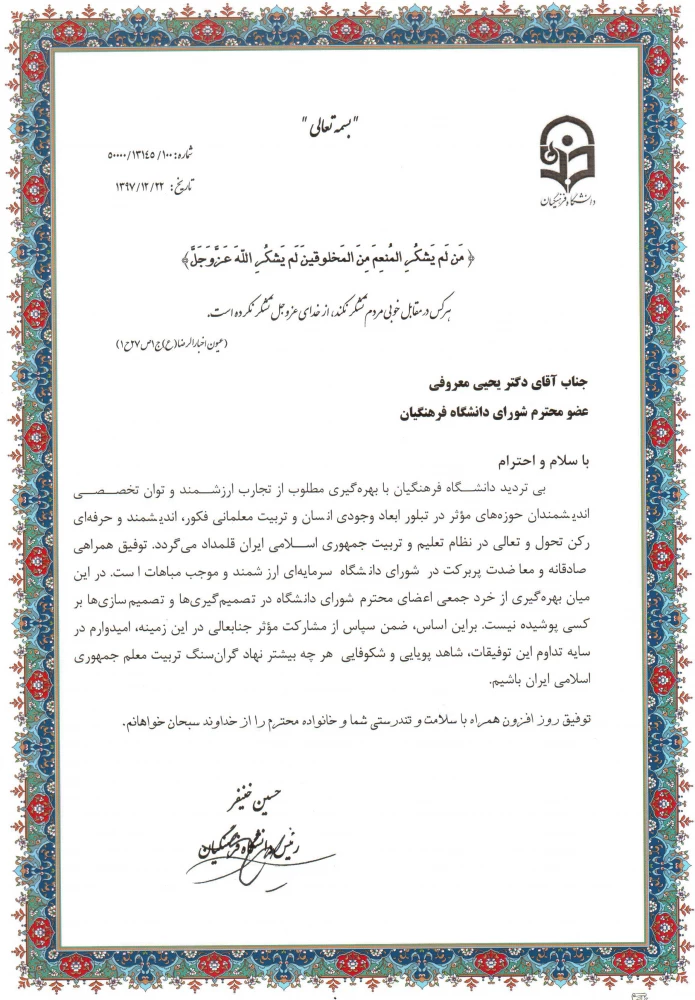 "بسمه تعالی"
شماره: ۵۰۰۰۰/۱۳۱۴۵/۱۰۰
تاریخ: ۱۳۹۷/۱۲/۲۲
دانشگاه فرهنگیان
﴿ مَن لَم يَشكُرِ المُنعِمَ مِنَ المَخلوقينَ لَم يَشكُرِ اللّهَ عَزَّوَجَلَّ﴾
هرکس در مقابل خوبی مردم تشکر نکند، از خدای عزوجل تشکر نکرده است.
(عیون اخبارالرضا(ع)ج۱ص۲۷ح۱)
جناب آقای دکتر یحیی معروفی
عضو محترم شورای دانشگاه فرهنگیان
با سلام و احترام
بی تردید دانشگاه فرهنگیان با بهره‌گیری مطلوب از تجارب ارزشمند و توان تخصصی
اندیشمندان حوزه‌های مؤثر در تبلور ابعاد وجودی انسان و تربیت معلمانی فکور، اندیشمند و حرفه‌ای
رکن تحول و تعالی در نظام تعلیم و تربیت جمهوری اسلامی ایران قلمداد می‌گردد. توفیق همراهی
صادقانه و معاضدت پربرکت در شورای دانشگاه سرمایه‌ای ارزشمند و موجب مباهات است. در این
میان بهره‌گیری از خرد جمعی اعضای محترم شورای دانشگاه در تصمیم‌گیری‌ها و تصمیم‌سازی‌ها بر
کسی پوشیده نیست. براین اساس، ضمن سپاس از مشارکت مؤثر جنابعالی در این زمینه، امیدوارم در
سایه تداوم این توفیقات، شاهد پویایی و شکوفایی هر چه بیشتر نهاد گران‌سنگ تربیت معلم جمهوری
اسلامی ایران باشیم.
توفیق روز افزون همراه با سلامت و تندرستی شما و خانواده محترم را از خداوند سبحان خواهانم.
حسین خنیفر
رئیس دانشگاه فرهنگیان